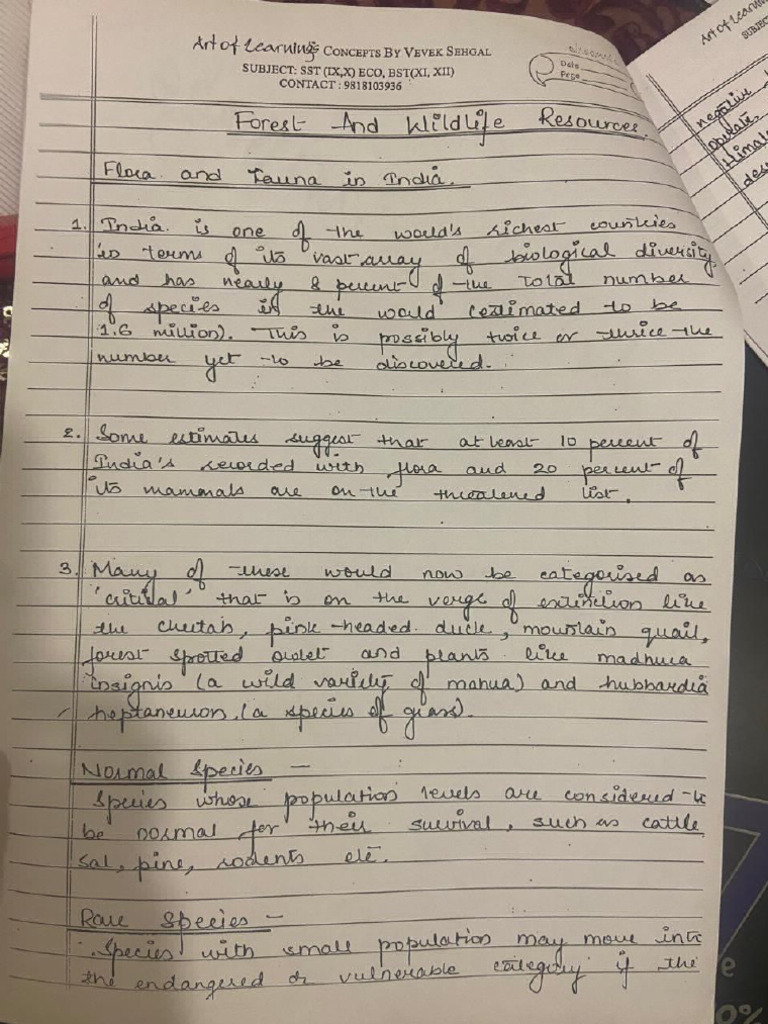 Art of Learning: CONCEPTS BY VEVEK SEHGAL
SUBJECT: SST (IX,X) ECO, BST(XI, XII)
CONTACT : 9818103936
Date
Page
Forest And Wildlife Resources.
Flora and Fauna in India.
1. India is one of the world's richest countries
in terms of its vast array of biological diversity
and has nearly 8 percent of the total number
of species in the world (estimated to be
1.6 million). This is possibly twice or thrice the
number yet to be discovered.
2. Some estimates suggest that at least 10 percent of
India's recorded with flora and 20 percent of
its mammals are on the threatened list.
3. Many of these would now be categorised as
'critical' that is on the verge of extinction like
the cheetah, pink-headed duck, mountain quail,
forest spotted owlet and plants like madhuca
insignis (a wild variety of mahua) and hubbardia
heptaneuron. (a species of grass).
Normal Species –
Species whose population levels are considered to
be normal for their survival, such as cattle
sal, pine, rodents etc.
Rare Species –
Species with small population may move into
the endangered or vulnerable category if the
Art of Learn
SUBJEC
negative
operate.
Himal
des
e
0%